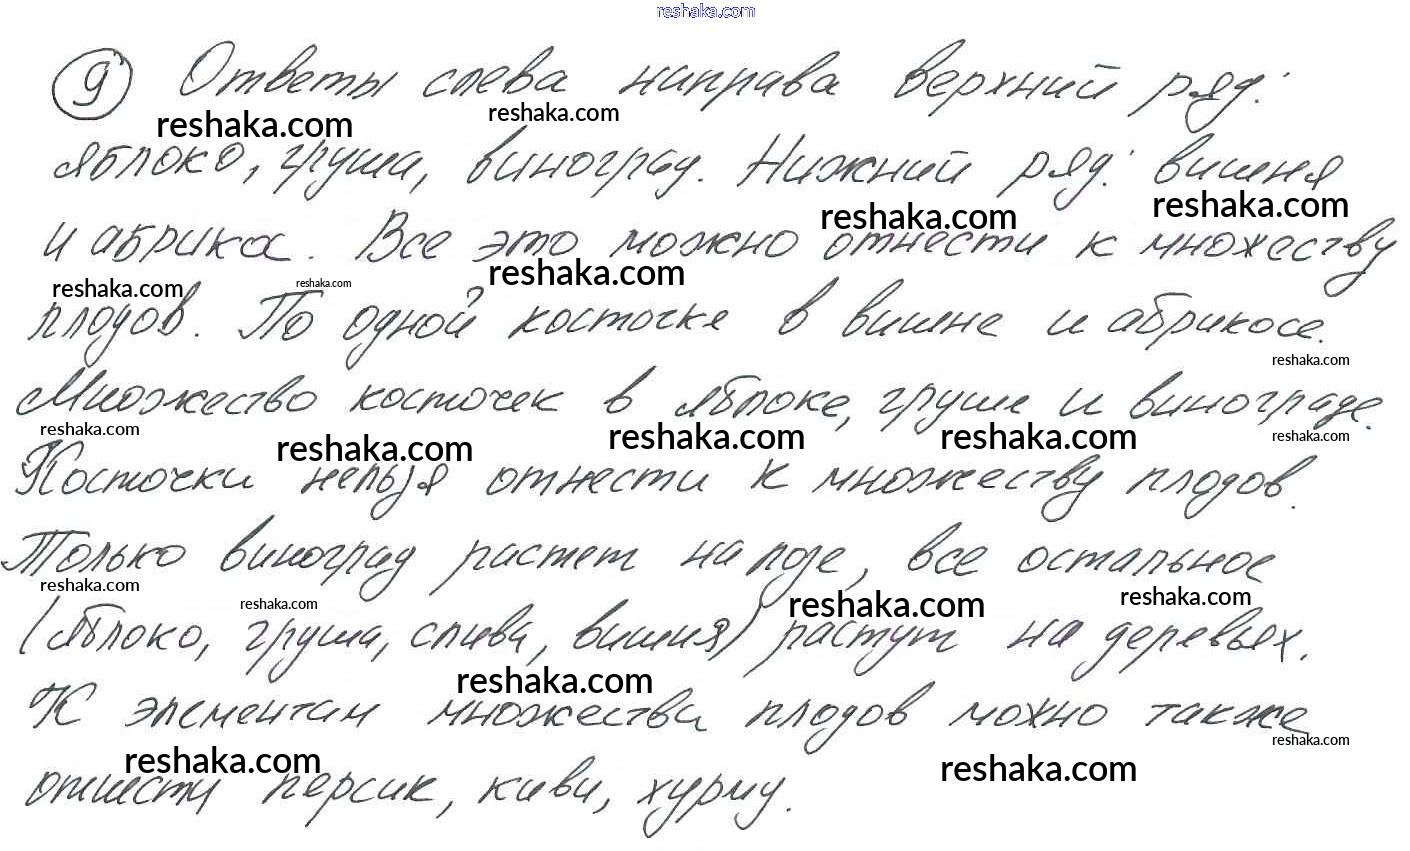 reshaka.com
9 Ответы слева направа верхний ряд:
reshaka.com reshaka.com
яблоко, груша, виноград. Нижний ряд: вишня
reshaka.com reshaka.com
и абрика. Все это можно отнести к множеству
reshaka.com reshaka.com reshaka.com
плодов. По одной косточке в вишне и абрикосе.
reshaka.com
Множество косточек в яблоке, груше и винограде.
reshaka.com reshaka.com reshaka.com reshaka.com reshaka.com
Косточки нельзя отнести к множеству плодов.
Только виноград растет на лозе, все остальное
reshaka.com reshaka.com reshaka.com reshaka.com
(яблоко, груша, слива, вишня) растут на деревьях.
reshaka.com
К элементам множества плодов можно также
reshaka.com reshaka.com reshaka.com
отнести персик, киви, хурму.